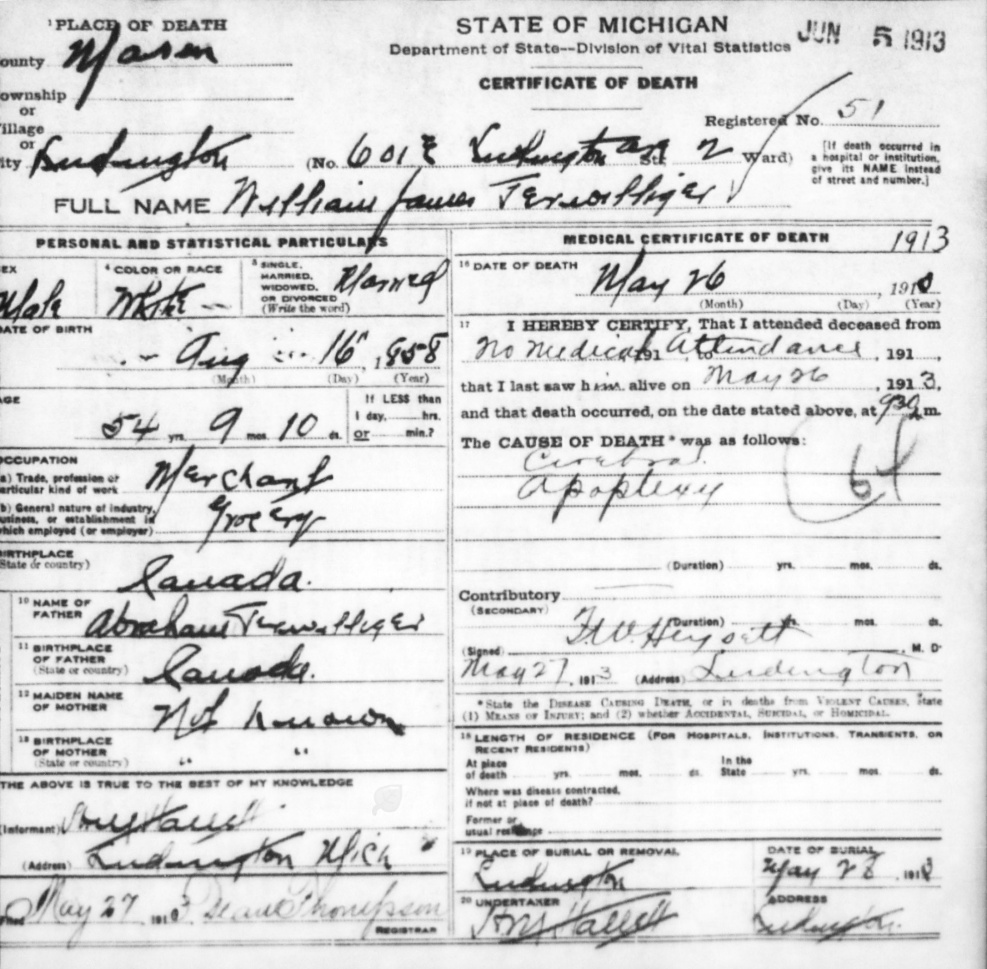 1 PLACE OF DEATH
STATE OF MICHIGAN
JUN 5 1913
Department of State--Division of Vital Statistics
ounty Mason
CERTIFICATE OF DEATH
ownship
or
illage
or
Registered No. 51
ity Ludington (No. 601 E Ludington ave St. 2 Ward)
[If death occurred in
a hospital or institution,
give its NAME instead
of street and number.]
FULL NAME William James Terwilliger
PERSONAL AND STATISTICAL PARTICULARS
EX
Male
4 COLOR OR RACE
White
5 SINGLE,
MARRIED,
WIDOWED,
OR DIVORCED
(Write the word)
Married
DATE OF BIRTH
Aug 16, 1858
(Month) (Day) (Year)
AGE
54 yrs. 9 mos. 10 ds.
If LESS than
1 day, hrs.
or min.?
OCCUPATION
(a) Trade, profession or
articular kind of work
Merchant
(b) General nature of industry,
usiness, or establishment in
which employed (or employer)
Grocery
BIRTHPLACE
(State or country)
Canada.
10 NAME OF
FATHER
Abraham Terwilliger
11 BIRTHPLACE
OF FATHER
(State or country)
Canada.
12 MAIDEN NAME
OF MOTHER
Not known
13 BIRTHPLACE
OF MOTHER
(State or country)
" "
THE ABOVE IS TRUE TO THE BEST OF MY KNOWLEDGE
(Informant) Hallett
(Address) Ludington Mich
Filed May 27 1913 Thompson
REGISTRAR
MEDICAL CERTIFICATE OF DEATH
1913
16 DATE OF DEATH
May 26, 191
(Month) (Day) (Year)
17 I HEREBY CERTIFY, That I attended deceased from
No Medical 191 to Attendance, 191
that I last saw him alive on May 26, 1913,
and that death occurred, on the date stated above, at 930 m.
The CAUSE OF DEATH* was as follows:
Cerebral
Apoplexy
64
(Duration) yrs. mos. ds.
Contributory
(SECONDARY)
(Duration) yrs. mos. ds.
(Signed) Heysett M. D.
May 27, 1913 (Address) Ludington
*State the DISEASE CAUSING DEATH, or in deaths from VIOLENT CAUSES, state
(1) MEANS OF INJURY; and (2) whether ACCIDENTAL, SUICIDAL, or HOMICIDAL.
18 LENGTH OF RESIDENCE (FOR HOSPITALS, INSTITUTIONS, TRANSIENTS, OR
RECENT RESIDENTS)
At place
of death yrs. mos. ds.
In the
State yrs. mos. ds.
Where was disease contracted,
if not at place of death?
Former or
usual residence
19 PLACE OF BURIAL OR REMOVAL
Ludington
DATE OF BURIAL
May 28, 1913
20 UNDERTAKER
Hallett
ADDRESS
Ludington.